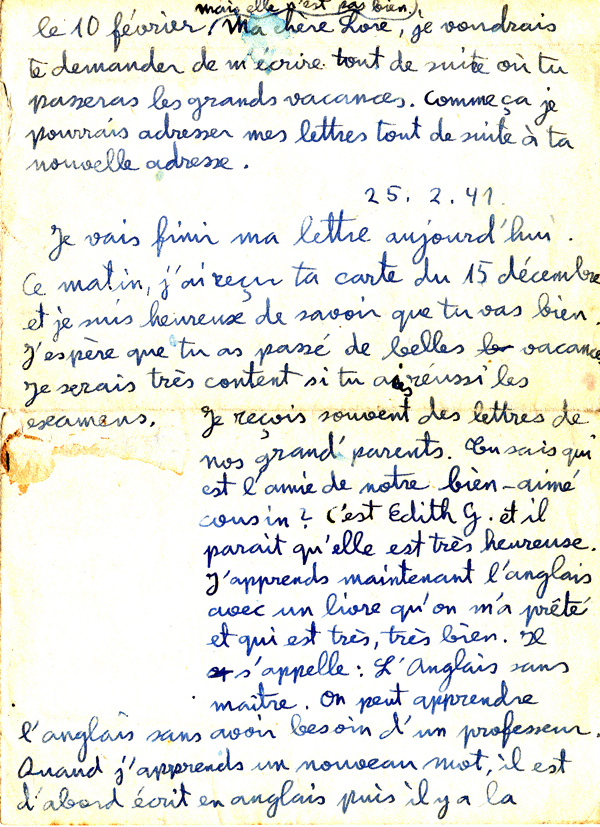 mais elle n'est pas bien.
le 10 février, Ma chère Lore, je voudrais
te demander de m'écrire tout de suite où tu
passeras les grands vacances. Comme ça je
pourrais adresser mes lettres tout de suite à ta
nouvelle adresse.
25. 2. 41.
Je vais finir ma lettre aujourd'hui.
Ce matin, j'ai reçu ta carte du 15 décembre
et je suis heureuse de savoir que tu vas bien.
J'espère que tu as passé de belles vacances
Je serais très content si tu aies réussi les
examens. Je reçois souvent des lettres de
nos grand'parents. Tu sais qui
est l'amie de notre bien-aimé
cousin? C'est Edith G. et il
parait qu'elle est très heureuse.
J'apprends maintenant l'anglais
avec un livre qu'on m'a prêté
et qui est très, très bien. Il
s'appelle: L'Anglais sans
maître. On peut apprendre
l'anglais sans avoir besoin d'un professeur.
Quand j'apprends un nouveau mot, il est
d'abord écrit en anglais puis il y a la